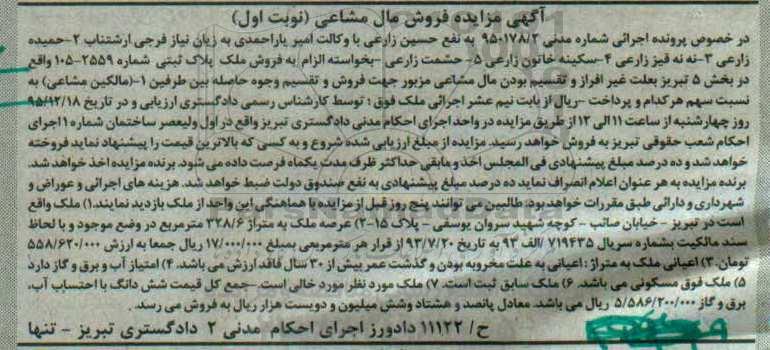 آگهی مزایده فروش مال مشاعی (نوبت اول)
در خصوص پرونده اجرائی شماره مدنی ۹۵-۱۷۸/۲ به نفع حسین زارعی با وکالت امیر یاراحمدی به زیان نیاز فرجی ارشتناب ۲-حمیده
زارعی ۳-نه نه قیز زارعی ۴-سکینه خاتون زارعی ۵- حشمت زارعی -بخواسته الزام به فروش ملک پلاک ثبتی شماره ۲۵۵۹-۱۰۵ واقع
در بخش ۵ تبریز بعلت غیر افراز و تقسیم بودن مال مشاعی مزبور جهت فروش و تقسیم وجوه حاصله بین طرفین ۱-(مالکین مشاعی) به
نسبت سهم هرکدام و پرداخت -ریال از بابت نیم عشر اجرائی ملک فوق ؛ توسط کارشناس رسمی دادگستری ارزیابی و در تاریخ ۹۵/۱۲/۱۸
روز چهارشنبه از ساعت ۱۱ الی ۱۲ از طریق مزایده در واحد اجرای احکام مدنی دادگستری تبریز واقع در اول ولیعصر ساختمان شماره ۱ اجرای
احکام شعب حقوقی تبریز به فروش خواهد رسید. مزایده از مبلغ ارزیابی شده شروع و به کسی که بالاترین قیمت را پیشنهاد نماید فروخته
خواهد شد و ده درصد مبلغ پیشنهادی فی المجلس اخذ و مابقی حداکثر ظرف مدت یکماه فرصت داده می شود. برنده مزایده اخذ خواهد شد.
برنده مزایده به هر عنوان اعلام انصراف نماید ده درصد مبلغ پیشنهادی به نفع صندوق دولت ضبط خواهد شد. هزینه های اجرائی و عوراض و
شهرداری و دارائی طبق مقررات خواهد بود. طالبین می توانند پنج روز قبل از مزایده با هماهنگی این واحد از ملک بازدید نمایند.۱) ملک واقع
است در تبریز - خیابان صائب - کوچه شهید سروان یوسفی - پلاک ۱۵-۲) عرصه ملک به متراژ ۳۲۸/۶ مترمربع در وضع موجود و با لحاظ
سند مالکیت بشماره سریال ۷۱۹۴۳۵ /الف ۹۳ به تاریخ ۹۳/۷/۲۰ از قرار هر مترمربعی بمبلغ ۱۷/۰۰۰/۰۰۰ ریال جمعا به ارزش ۵۵۸/۶۲۰/۰۰۰
تومان.۳) اعیانی ملک به متراژ : اعیانی به علت مخروبه بودن و گذشت عمر بیش از ۳۰ سال فاقد ارزش می باشد. ۴) امتیاز آب و برق و گاز دارد
۵) ملک فوق مسکونی می باشد. ۶) ملک سابق ثبت است. ۷) ملک مورد نظر مورد خالی است.-جمع کل قیمت شش دانگ با احتساب آب،
برق و گاز ۵/۵۸۶/۲۰۰/۰۰۰ ریال می باشد. معادل پانصد و هشتاد وشش میلیون و دویست هزار ریال به فروش می رسد .
ح/ ۱۱۱۲۲ دادورز اجرای احکام مدنی ۲ دادگستری تبریز - تنها
ParsNamadData